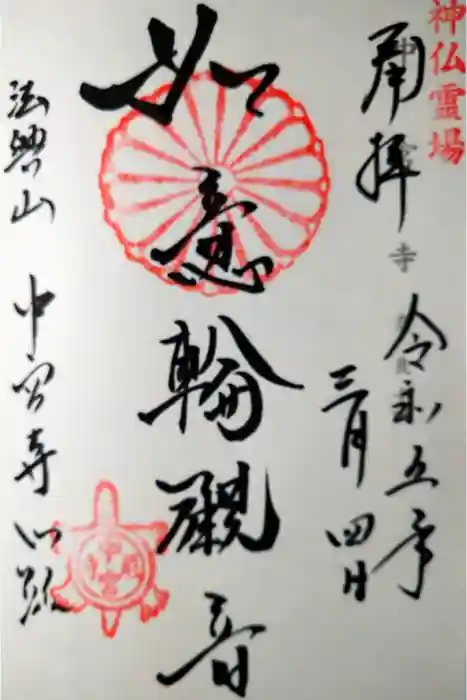 神仏霊場
奉拝
令和五年
三月四日
如意輪觀音
法興山 中宮寺門跡